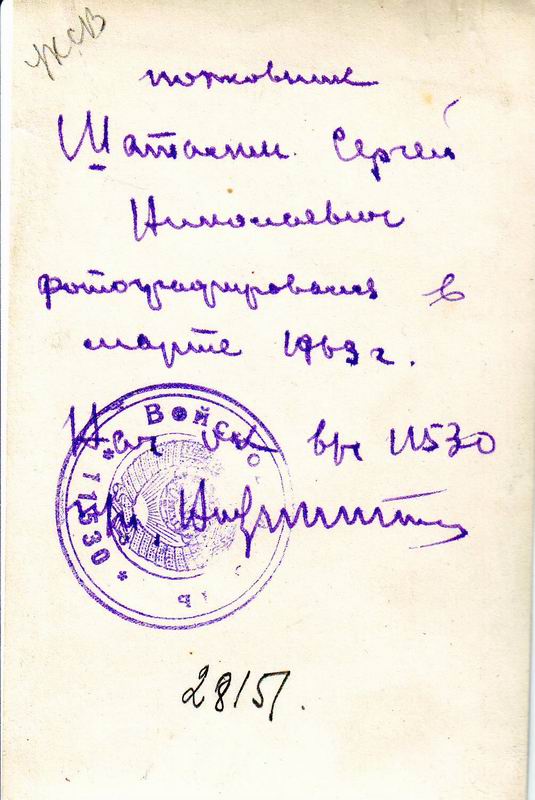 УКСВ
полковник
Шаталин Сергей
Николаевич
фотографировался в
марте 1963 г.
Нач ок в/ч 11530
* Войско
11530 *
28/5/.